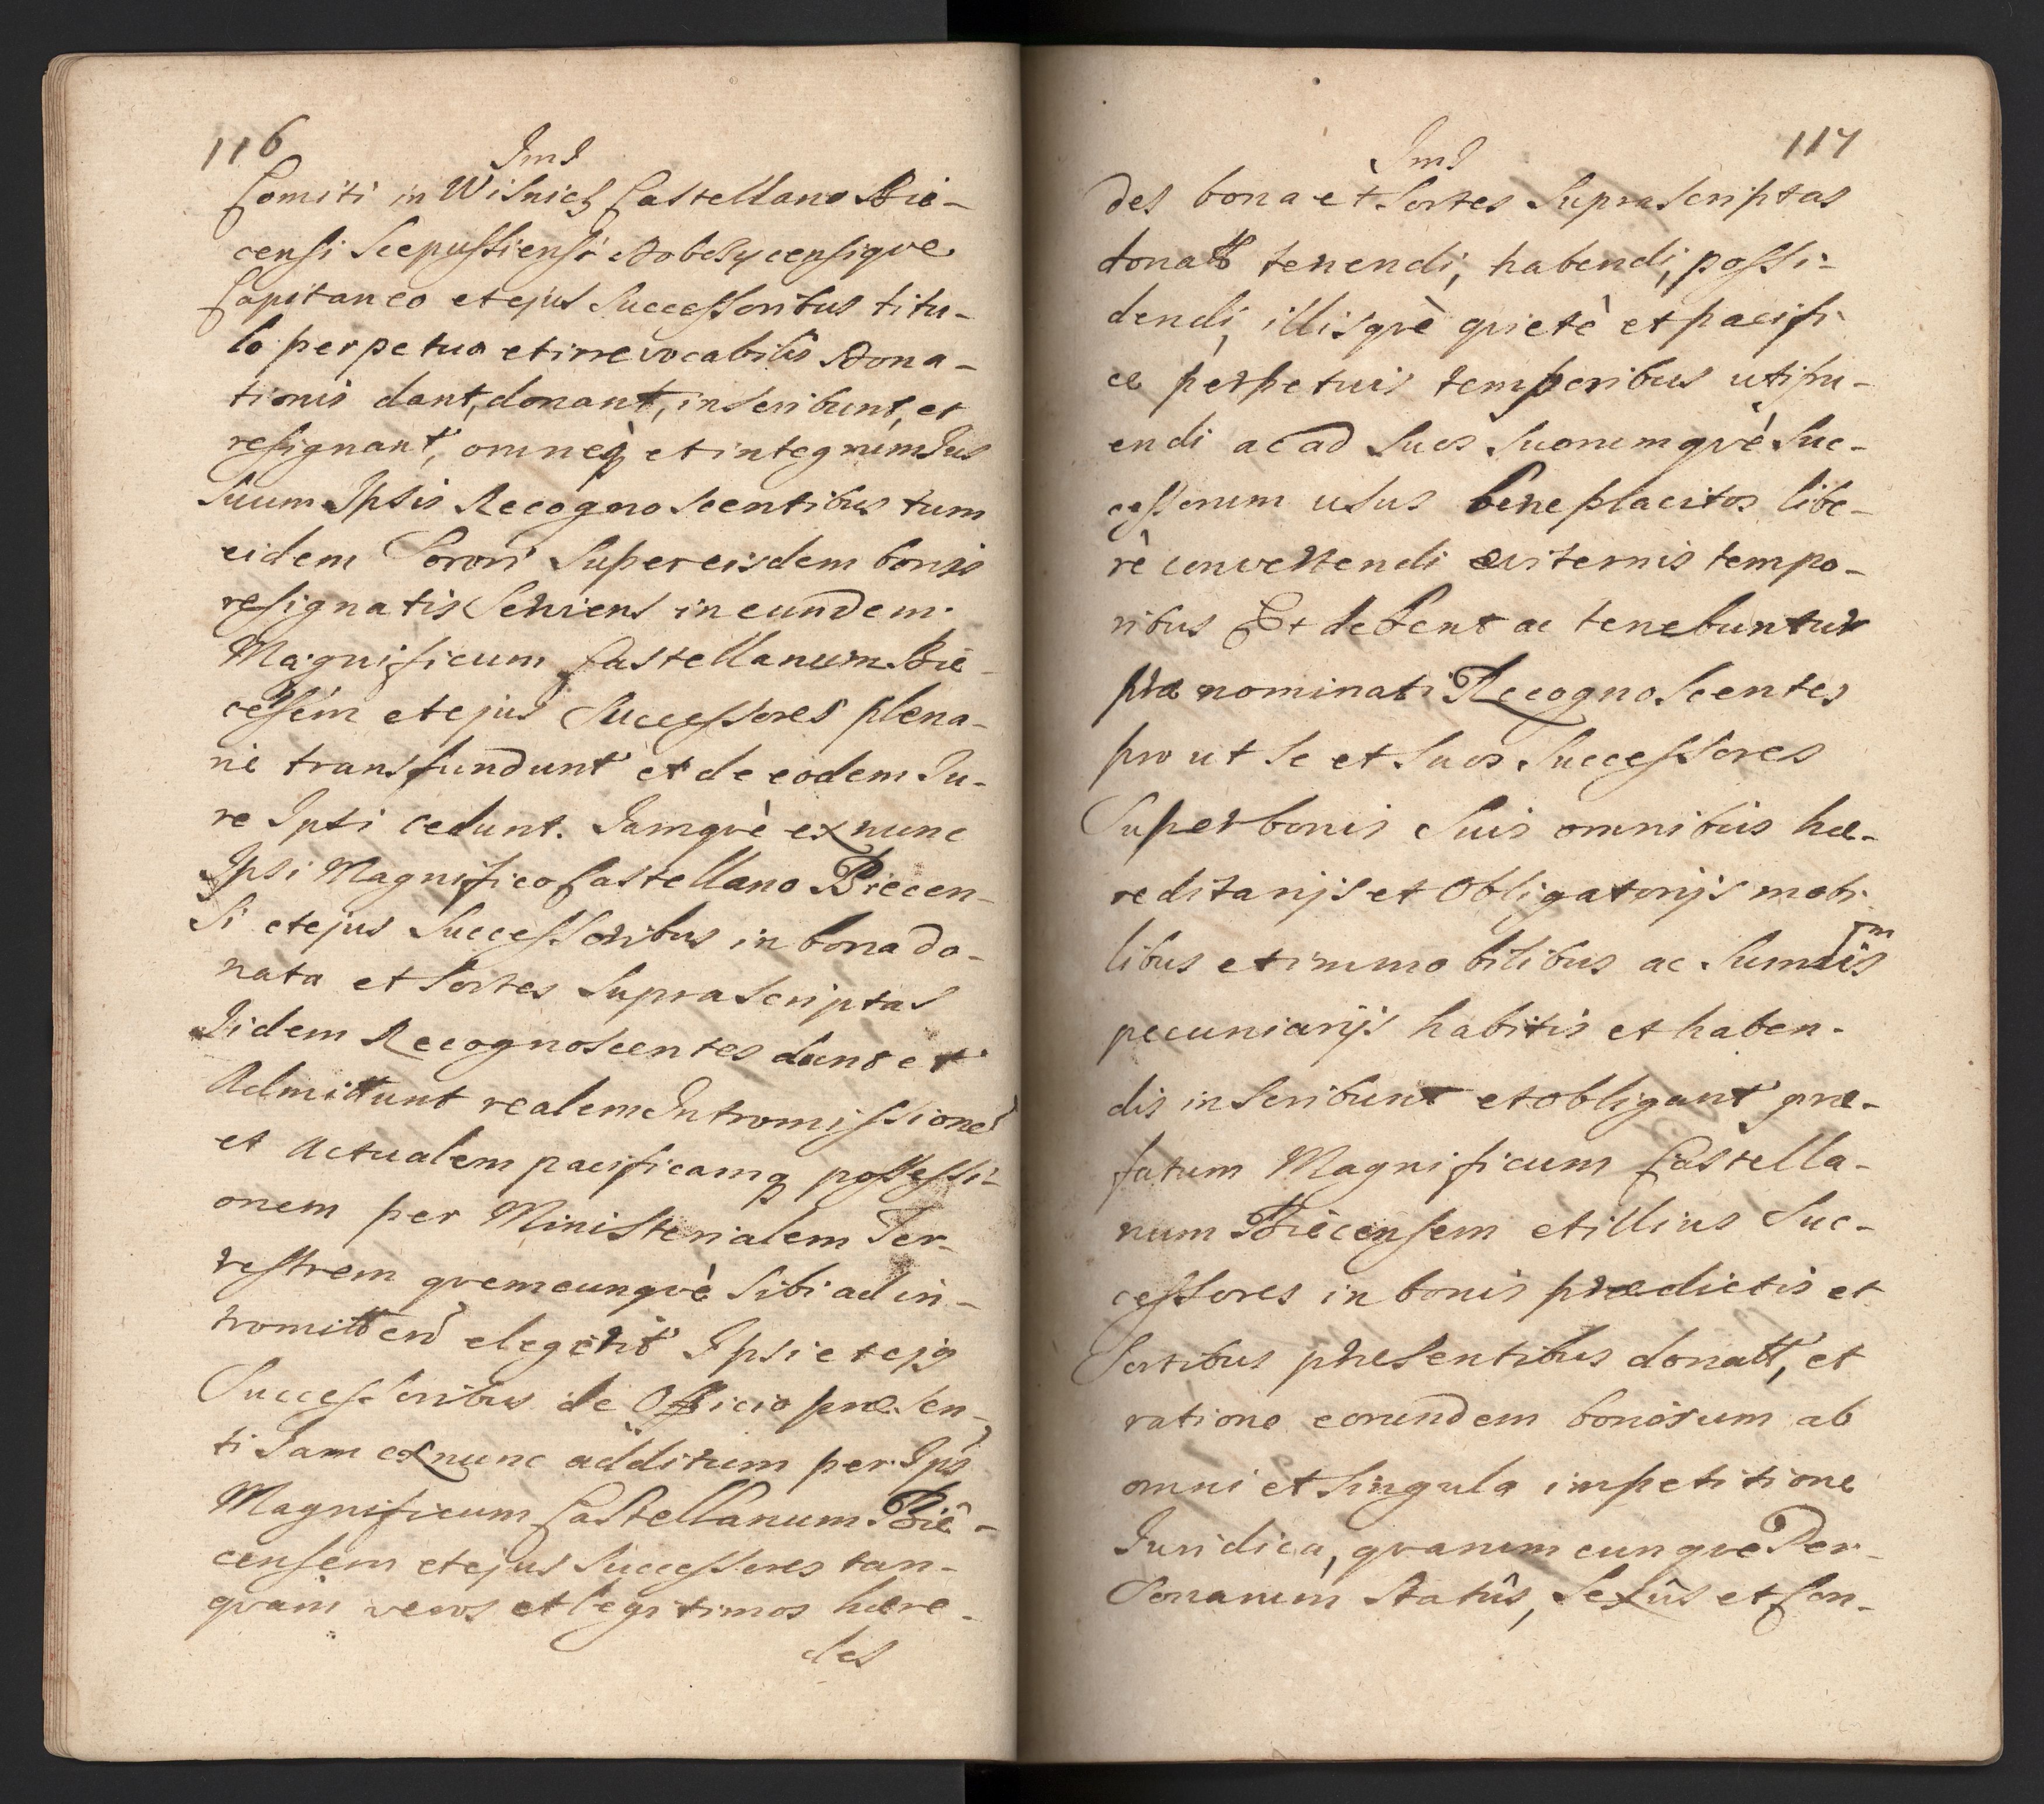 116
Jmś
Comiti in Wisnicz Castellano Bie-
censi Scepussiensi Dobczycensique
Capitaneo et ejus Successoribus titu-
lo perpetua et irrevocabilis Dona-
tionis dant, donant, inscribunt, et
resignant, omneq et integrum Jus
Suum Ipsis Recognoscentibus tum
eidem Sorori Super eisdem bonis
resignatis Serviens in eundem
Magnificum Castellanum Bie-
cesem et ejus Successores plena-
riè transfundunt et de eodem Ju-
re Ipsi cedunt. Jamqvè ex nunc
Ipsi Magnifico Castellano Biecen-
si et ejus Successoribus in bona do-
nata et Sortes Suprascriptas
Iidem Recognoscentes dant et
Admittunt realem Intromissione
et Actualem pacificamq possessi-
onem per Ministerialem Ter-
restrem qvemcunqvè Sibi ad in-
tromittend elegerit Ipsi et ejq
Successoribus de Officio præsen-
ti Jam ex nunc additum per Ips
Magnificum Castellanum Biê-
censem et ejus Successores tan-
qvam veros et legitimos hære-
des
117
Jmś
des bona èt Sortes Suprascriptas
donatt tenendi, habendi, possi-
dendi, illisqvè qvietè et pacifi-
ce perpetuis temporibus utifru-
endi ac ad Suos Suorumqvè Suc-
cessorum usus beneplacitos libe-
rè convertendi æviternis tempo-
ribus Et debent ac tenebuntur
præ nominati Recognoscentes
pro ut Se et Suos Successores
Super bonis Suis omnibus hæ-
reditarijs et Obligatorijs mobi-
libus et immobilibus ac Sumis
pecuniarijs habitis et haben-
dis inscribunt et obligant præ-
fatum Magnificum Castella-
num Biècensem et illius Suc-
cessores in bonis prædictis et
Sortibus præsentibus donatt, et
ratione eorundem bonorum ab
omni et Singula impetitione
Juridica, qvarumcunqve Per-
sonarum Statûs, Sexûs et Con-